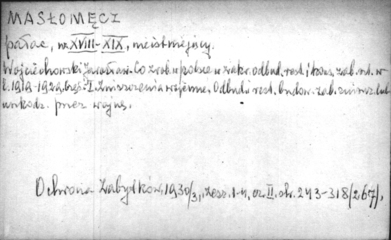 MASŁOMĘCZ
pałac, w. XVIII-XIX, nieistniejący.
Wojciechowski Jarosław. Co zrob. w Polsce w zakr. odbud., rest. i kons. zab. szt. w
l. 1919-1929. Część I. Zniszczenia wojenne. Odbud. i rest. budow. zab. zniszcz. lub
uszkodz. przez wojnę.
Ochrona Zabytków, 1930/3, zesz. 1-4, cz. II. str. 243-318 (267).